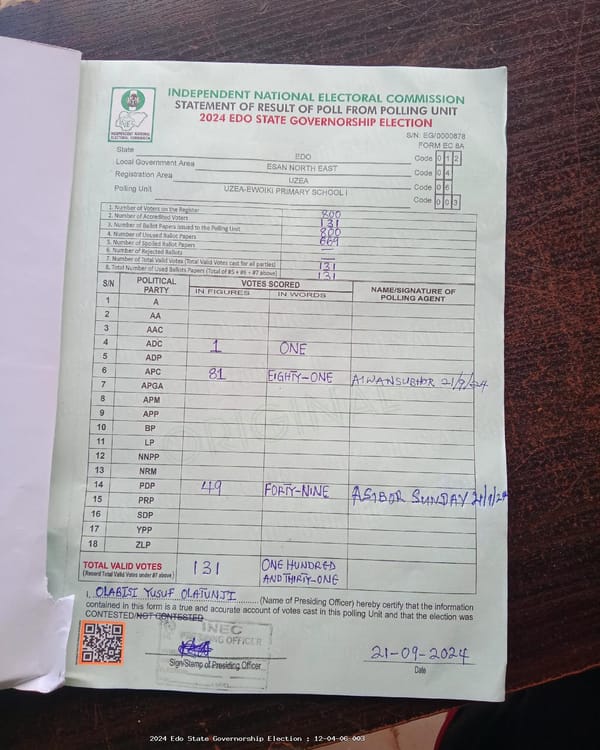 INDEPENDENT NATIONAL ELECTORAL COMMISSION
STATEMENT OF RESULT OF POLL FROM POLLING UNIT
2024 EDO STATE GOVERNORSHIP ELECTION
INDEPENDENT NATIONAL
ELECTORAL COMMISSION
S/N: EG/0000878
FORM EC 8A
State EDO Code 0 1 2
Local Government Area ESAN NORTH EAST Code 0 4
Registration Area UZEA Code 0 6
Polling Unit UZEA-EWOIKI PRIMARY SCHOOL I Code 0 0 3
1. Number of Voters on the Register 800
2. Number of Accredited Voters 131
3. Number of Ballot Papers Issued to the Polling Unit 800
4. Number of Unused Ballot Papers 669
5. Number of Spoiled Ballot Papers —
6. Number of Rejected Ballots —
7. Number of Total Valid Votes (Total Valid Votes cast for all parties) 131
8. Total Number of Used Ballots Papers (Total of #5 + #6 + #7 above) 131
S/N POLITICAL PARTY VOTES SCORED NAME/SIGNATURE OF POLLING AGENT
IN FIGURES IN WORDS
1 A
2 AA
3 AAC
4 ADC 1 ONE
5 ADP
6 APC 81 EIGHTY-ONE 21/9/24
7 APGA
8 APM
9 APP
10 BP
11 LP
12 NNPP
13 NRM
14 PDP 49 FORTY-NINE ASIBOR SUNDAY 21/9/24
15 PRP
16 SDP
17 YPP
18 ZLP
ORIGINAL
TOTAL VALID VOTES 131 ONE HUNDRED
(Record Total Valid Votes under #7 above) AND THIRTY-ONE
I, OLABISI YUSUF OLATUNJI (Name of Presiding Officer) hereby certify that the information
contained in this form is a true and accurate account of votes cast in this polling Unit and that the election was
CONTESTED/NOT CONTESTED
INEC
OFFICER
Sign/Stamp of Presiding Officer
21-09-2024
Date
2024 Edo State Governorship Election : 12-04-06-003